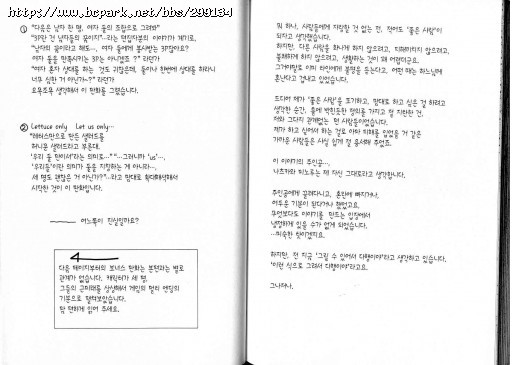 https://www.bcpark.net/bbs/299134
① "다음은 남자 한 명, 여자 둘의 조합으로 그려봐"
"3P만 건 남자들의 꿈이지"--라는 편집자분의 이야기가 계기로,
"남자의 꿈이라고 해도…, 여자 둘에게 봉사받는 3P잖아요?
여자 둘을 만족시키는 3P는 아니겠죠?" 라던가
"여자 혼자 상대를 하는 것도 귀찮은데, 둘이나 한번에 상대를 하라니
너무 심한 거 아닌가~?" 라던가
요모조모 생각해서 이 만화를 그렸습니다.
② Lettuce only Let us only…
"레터스만으로 만든 샐러드를
허니문 샐러드라고 부른대.
'우리 둘 만이서'라는 의미로…" "…그러니까 'us'…,
'우리들'이란 의미가 둘을 지칭하는 게 아니라…
세 명도 괜찮은 거 아닌가?"…라고 맘대로 확대해석해서
시작한 것이 이 만화입니다.
어느쪽이 진실일까요?
다음 페이지부터의 보너스 만화는 본편과는 별로
관계가 없습니다. 캐릭터가 세 명,
그들의 근미래를 상상해서 게임의 멀티 엔딩의
기분으로 펼쳐보았습니다.
맘 편하게 읽어 주세요.
뭐 하나, 사람들에게 자랑할 것 없는 전, 적어도 "좋은 사람"이
되자고 생각했습니다.
하지만, 다른 사람을 화나게 하지 않으려고, 피해끼치지 않으려고,
불쾌하게 하지 않으려고, 생활하는 것이 꽤 어렵더군요.
그거야말로 이미 타인에게 불평을 듣는다고. 어떤 때는 하느님께
혼난다고 겁내고 있었습니다.
드디어 제가 "좋은 사람"을 포기하고, 맘대로 하고 싶은 걸 하려고
생각한 순간, 틀에 박힌듯한 정의를 가지고 절 지탄한 건,
저와 그다지 관계없는 먼 사람들이었습니다.
제가 하고 싶어서 하는 걸로 아마 피해를 입었을 거 같은
가까운 사람들은 사실 쉽게 절 용서해 주었죠.
이 이야기의 주인공…,
나츠카와 히노루는 제 자신 그대로라고 생각합니다.
주인공에게 끌려다니고, 혼란에 빠지거나,
어두운 기분이 된다거나 했었고요.
무엇보다도 이야기를 만드는 입장에서
냉철하게 있을 수가 없게 되었습니다.
…미숙한 탓이겠지요.
하지만, 전 지금 "그릴 수 있어서 다행이야"라고 생각하고 있습니다.
"이런 식으로 그려서 다행이야"라고요.
그나저나.